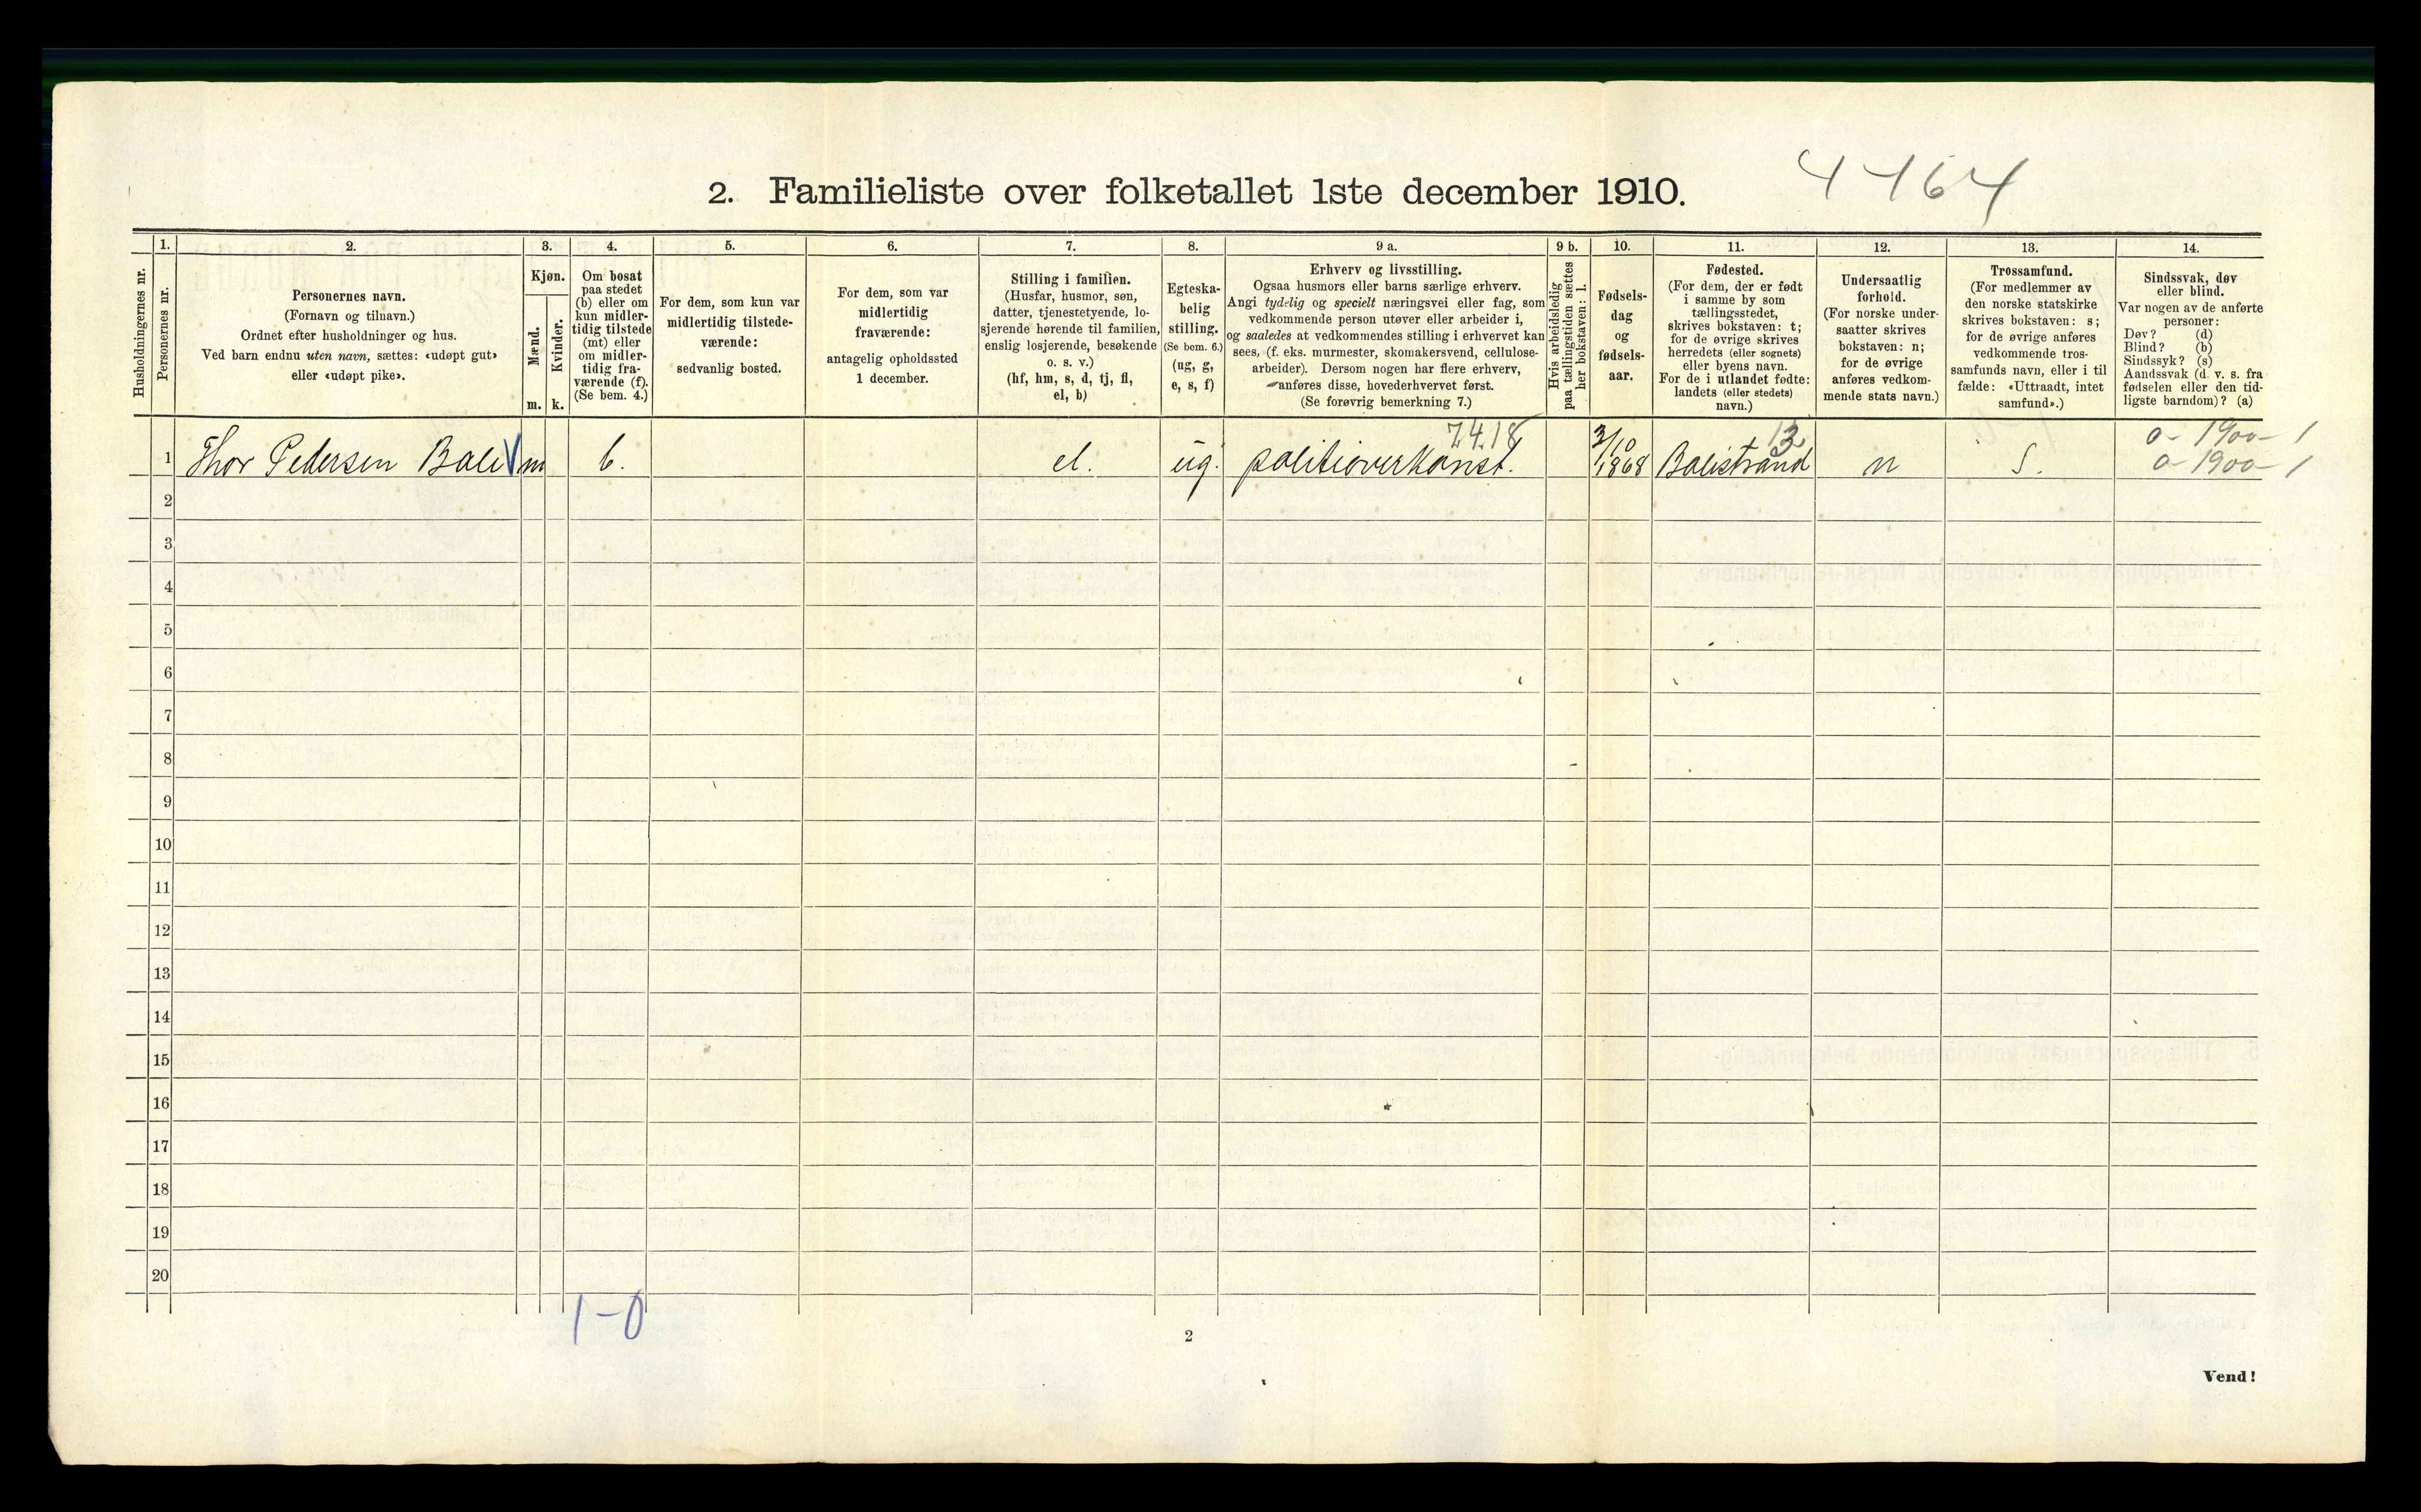 4464
2. Familieliste over folketallet 1ste december 1910.
Husholdningernes nr.
1.
Personernes nr.
2.
Personernes navn.
(Fornavn og tilnavn.)
Ordnet efter husholdninger og hus.
Ved barn endnu uten navn, sættes: «udøpt gut»
eller «udøpt pike».
3.
Kjøn.
Mænd.
Kvinder.
m. k.
4.
Om bosat
paa stedet
(b) eller om
kun midler-
tidig tilstede
(mt) eller
om midler-
tidig fra-
værende (f).
(Se bem. 4.)
5.
For dem, som kun var
midlertidig tilstede-
værende:
sedvanlig bosted.
6.
For dem, som var
midlertidig
fraværende:
antagelig opholdssted
1 december.
7.
Stilling i familien.
(Husfar, husmor, søn,
datter, tjenestetyende, lo-
sjerende hørende til familien,
enslig losjerende, besøkende
o. s. v.)
(hf, hm, s, d, tj, fl,
el, b)
8.
Egteska-
belig
stilling.
(Se bem. 6.)
(ug, g,
e, s, f)
9 a.
Erhverv og livsstilling.
Ogsaa husmors eller barns særlige erhverv.
Angi tydelig og specielt næringsvei eller fag, som
vedkommende person utøver eller arbeider i,
og saaledes at vedkommendes stilling i erhvervet kan
sees, (f. eks. murmester, skomakersvend, cellulose-
arbeider). Dersom nogen har flere erhverv,
anføres disse, hovederhvervet først.
(Se forøvrig bemerkning 7.)
9 b.
Hvis arbeidsledig
paa tællingstiden sættes
her bokstaven: l.
10.
Fødsels-
dag
og
fødsels-
aar.
11.
Fødested.
(For dem, der er født
i samme by som
tællingsstedet,
skrives bokstaven: t;
for de øvrige skrives
herredets (eller sognets)
eller byens navn.
For de i utlandet fødte:
landets (eller stedets)
navn.)
12.
Undersaatlig
forhold.
(For norske under-
saatter skrives
bokstaven: n;
for de øvrige
anføres vedkom-
mende stats navn.)
13.
Trossamfund.
(For medlemmer av
den norske statskirke
skrives bokstaven: s;
for de øvrige anføres
vedkommende tros-
samfunds navn, eller i til
fælde: «Uttraadt, intet
samfund».)
14.
Sindssvak, døv
eller blind.
Var nogen av de anførte
personer:
Døv? (d)
Blind? (b)
Sindssyk? (s)
Aandssvak (d. v. s. fra
fødselen eller den tid-
ligste barndom)? (a)
7.4.18 13 0-1900-1
1 Thor Pedersen Bale m b. el. ug. politioverkonst. 3/10 1868 Balestrand n S. 0-1900-1
2
3
4
5
6
7
8
9
10
11
12
13
14
15
16
17
18
19
20
1-0
2
Vend!